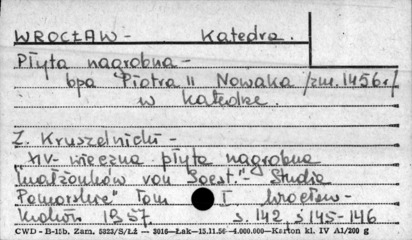 WROCŁAW - Katedra.
Płyta nagrobna -
bpa Piotra II Nowaka /zm. 1456 r/
w katedrze.
Z. Kruszelnicki -
"XIV- wieczna płyta nagrobna
małżonków von Soest." - Studia
Pomorskie" Tom I Wrocław-
Kraków 1957 s. 142, s. 145-146
CWD - B-15b. Zam. 5323/S/Łż — 3016—Łak—15.11.56 —4.000.000—Karton kl. IV A1/200 g